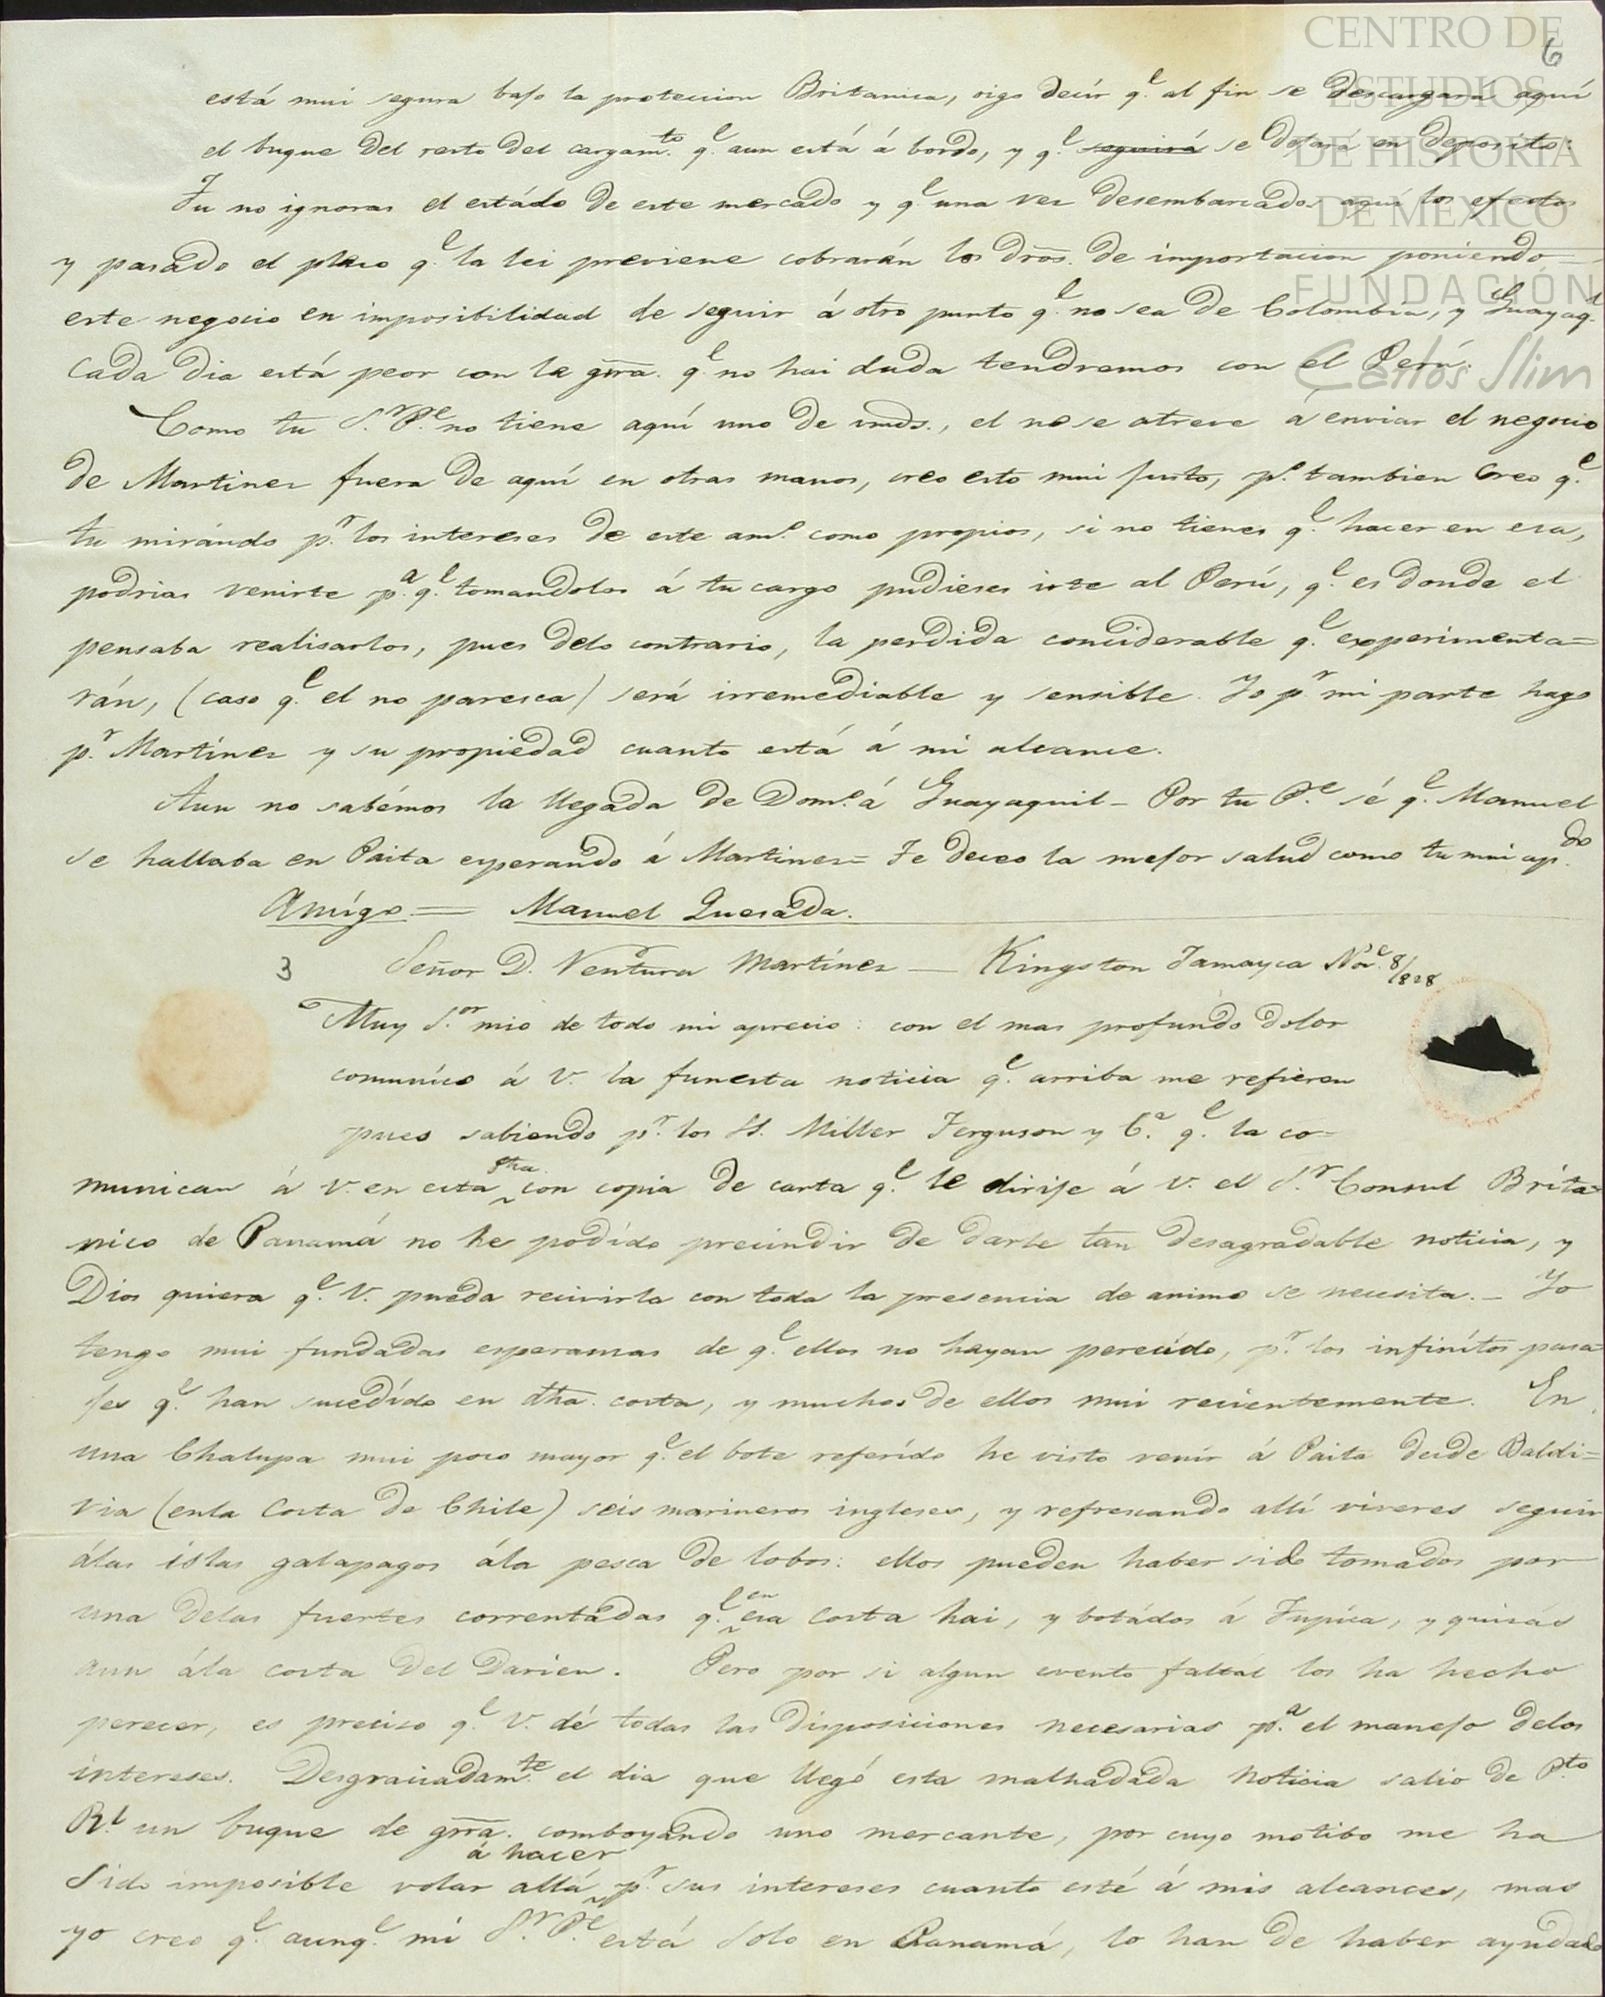 CENTRO DE
ESTUDIOS
DE HISTORIA
DE MÉXICO
FUNDACIÓN
Carlos Slim
6
está mui segura bajo la proteccion Britanica, oigo decír q.e al fin se descargara aquí
el buque del resto del cargam.to q.e aun está á bordo, y q.e seguirá se dejará en deposito:
Tu no ignoras el estádo de este mercado y q.e una vez desembarcados aquí los efectos
y pasado el plazo q.e la lei previene cobrarán los dros. de importacion poniendo
este negocio en imposibilidad de seguir á otro punto q.e no sea de Colombia, y Guayaq.l
cada dia está peor con la grra. q.e no hai duda tendremos con el Perú:
Como tu S.r P.e no tiene aquí uno de vmds., el no se atreve á enviar el negocio
de Martinez fuera de aquí en otras manos, creo esto mui justo, p.o tambien creo q.e
tu mirándo p.r los intereses de este am.o como propios, si no tienes q.e hacer en esa,
podrias venirte p.a q.e tomandolos á tu cargo pudieses irte al Perú, q.e es donde el
pensaba realisarlos, pues delo contrario, la perdida conciderable q.e experimenta=
rán, (caso q.e el no paresca) será irremediable y sensible. Yo p.r mi parte hago
p.r Martínez y su propiedad cuanto está á mi alcance.
Aun no sabémos la llegada de Dom.o á Guayaquil - Por tu P.e sé q.e Manuel
se hallaba en Paita esperando á Martinez = Te deceo la mejor salud como tu mui ap.do
Amígo = Manuel Quesada.
3 Señor D. Ventura Martínez — Kingston Jamayca Nov.e 8/828
Muy S.or mio de todo mi aprecio: con el mas profundo dolor
comuníco á V. la funesta noticia q.e arriba me refieren
pues sabiendo p.r los SS. Miller Ferguson y C.a q.e la co=
munican á V. en esta fha. con copia de carta q.e le dirije á V. el S.r Consul Brita=
nico de Panamá no he podído precindir de darle tan desagradable noticia, y
Dios quiera q.e V. pueda recivirla con toda la presencia de animo se necesita. — Yo
tengo mui fundadas esperansas de q.e ellos no hayan perecído, p.r los infinítos pasa=
jes q.e han sucedído en dha. costa, y muchos de ellos mui recientemente. En
una Chalupa mui poco mayor q.e el bote referído he visto venír á Paita desde Baldi=
via (enla Costa de Chile) seis marineros ingleses, y refrescando allí viveres seguir
álas islas galapagos ála pesca de lobos: ellos pueden haber sido tomados por
una delas fuertes correntádas q.e en esa costa hai, y botádos á Tupica, y quisás
aun ála costa del Darien. Pero por si algun evento faltál los ha hecho
perecer, es preciso q.e V. dé todas las disposiciones necesarias p.a el manejo delos
intereses. Desgraciadam.te el dia que llegó esta malhadada noticia salio de P.to
R.l un buque de grra. comboyando uno mercante, por cuyo motibo me ha
sido imposible volar allá á hacer p.r sus intereses cuanto esté á mis alcances, mas
yo creo q.e aunq.e mi S.r P.e está solo en Panamá, lo han de haber ayudado